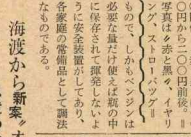 円前から二〇〇円前後、
写真は赤と黒のタイヤー
ング、ストローパッグ＝
もので、しかもベンジンは
必要な量だけ使えば瓶の中
に保存されて揮発しないよ
うに安全装置がしてあり、
各家庭の常備品として調法
なものである。
海渡から新案